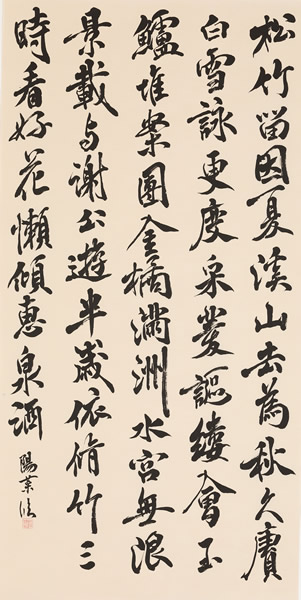 松竹留因夏溪山去為秋久賡
白雪詠更度采菱謳縷會玉
鱸堆案團金橘滿洲水宮無限
景載与謝公遊半歲依脩竹三
時看好花懶傾惠泉酒